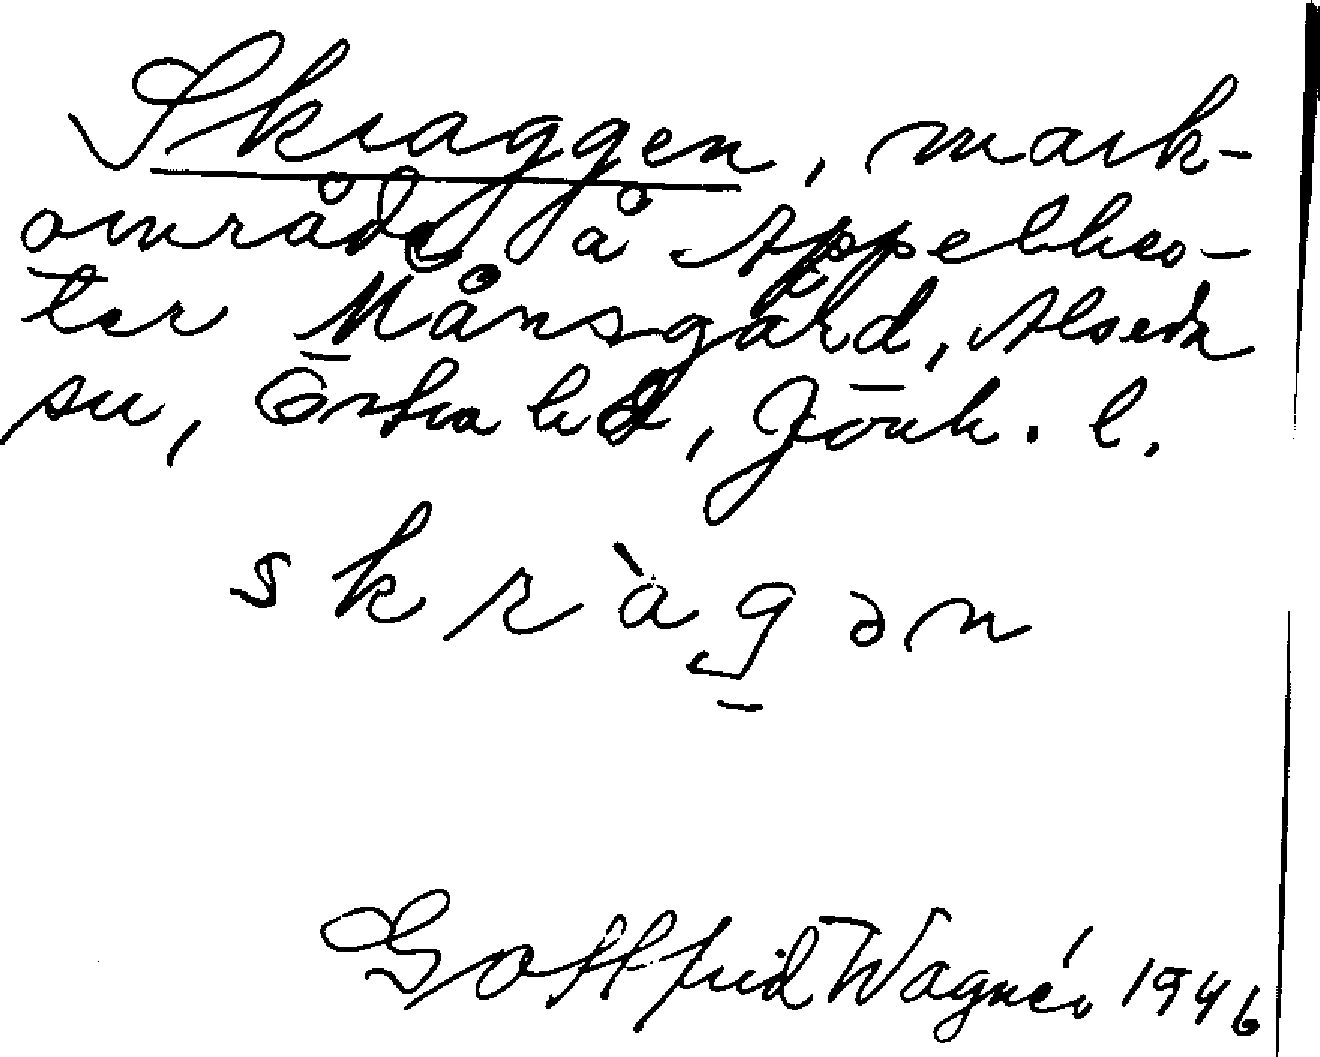 Skraggen, mark-
område å Äppelkro-
ter Månsgård, Alseda
sn, Östra hd, Jönk. l.
skràgən
Gottfrid Wagnér 1946